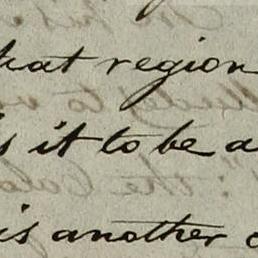 that region
is it to be a
is another